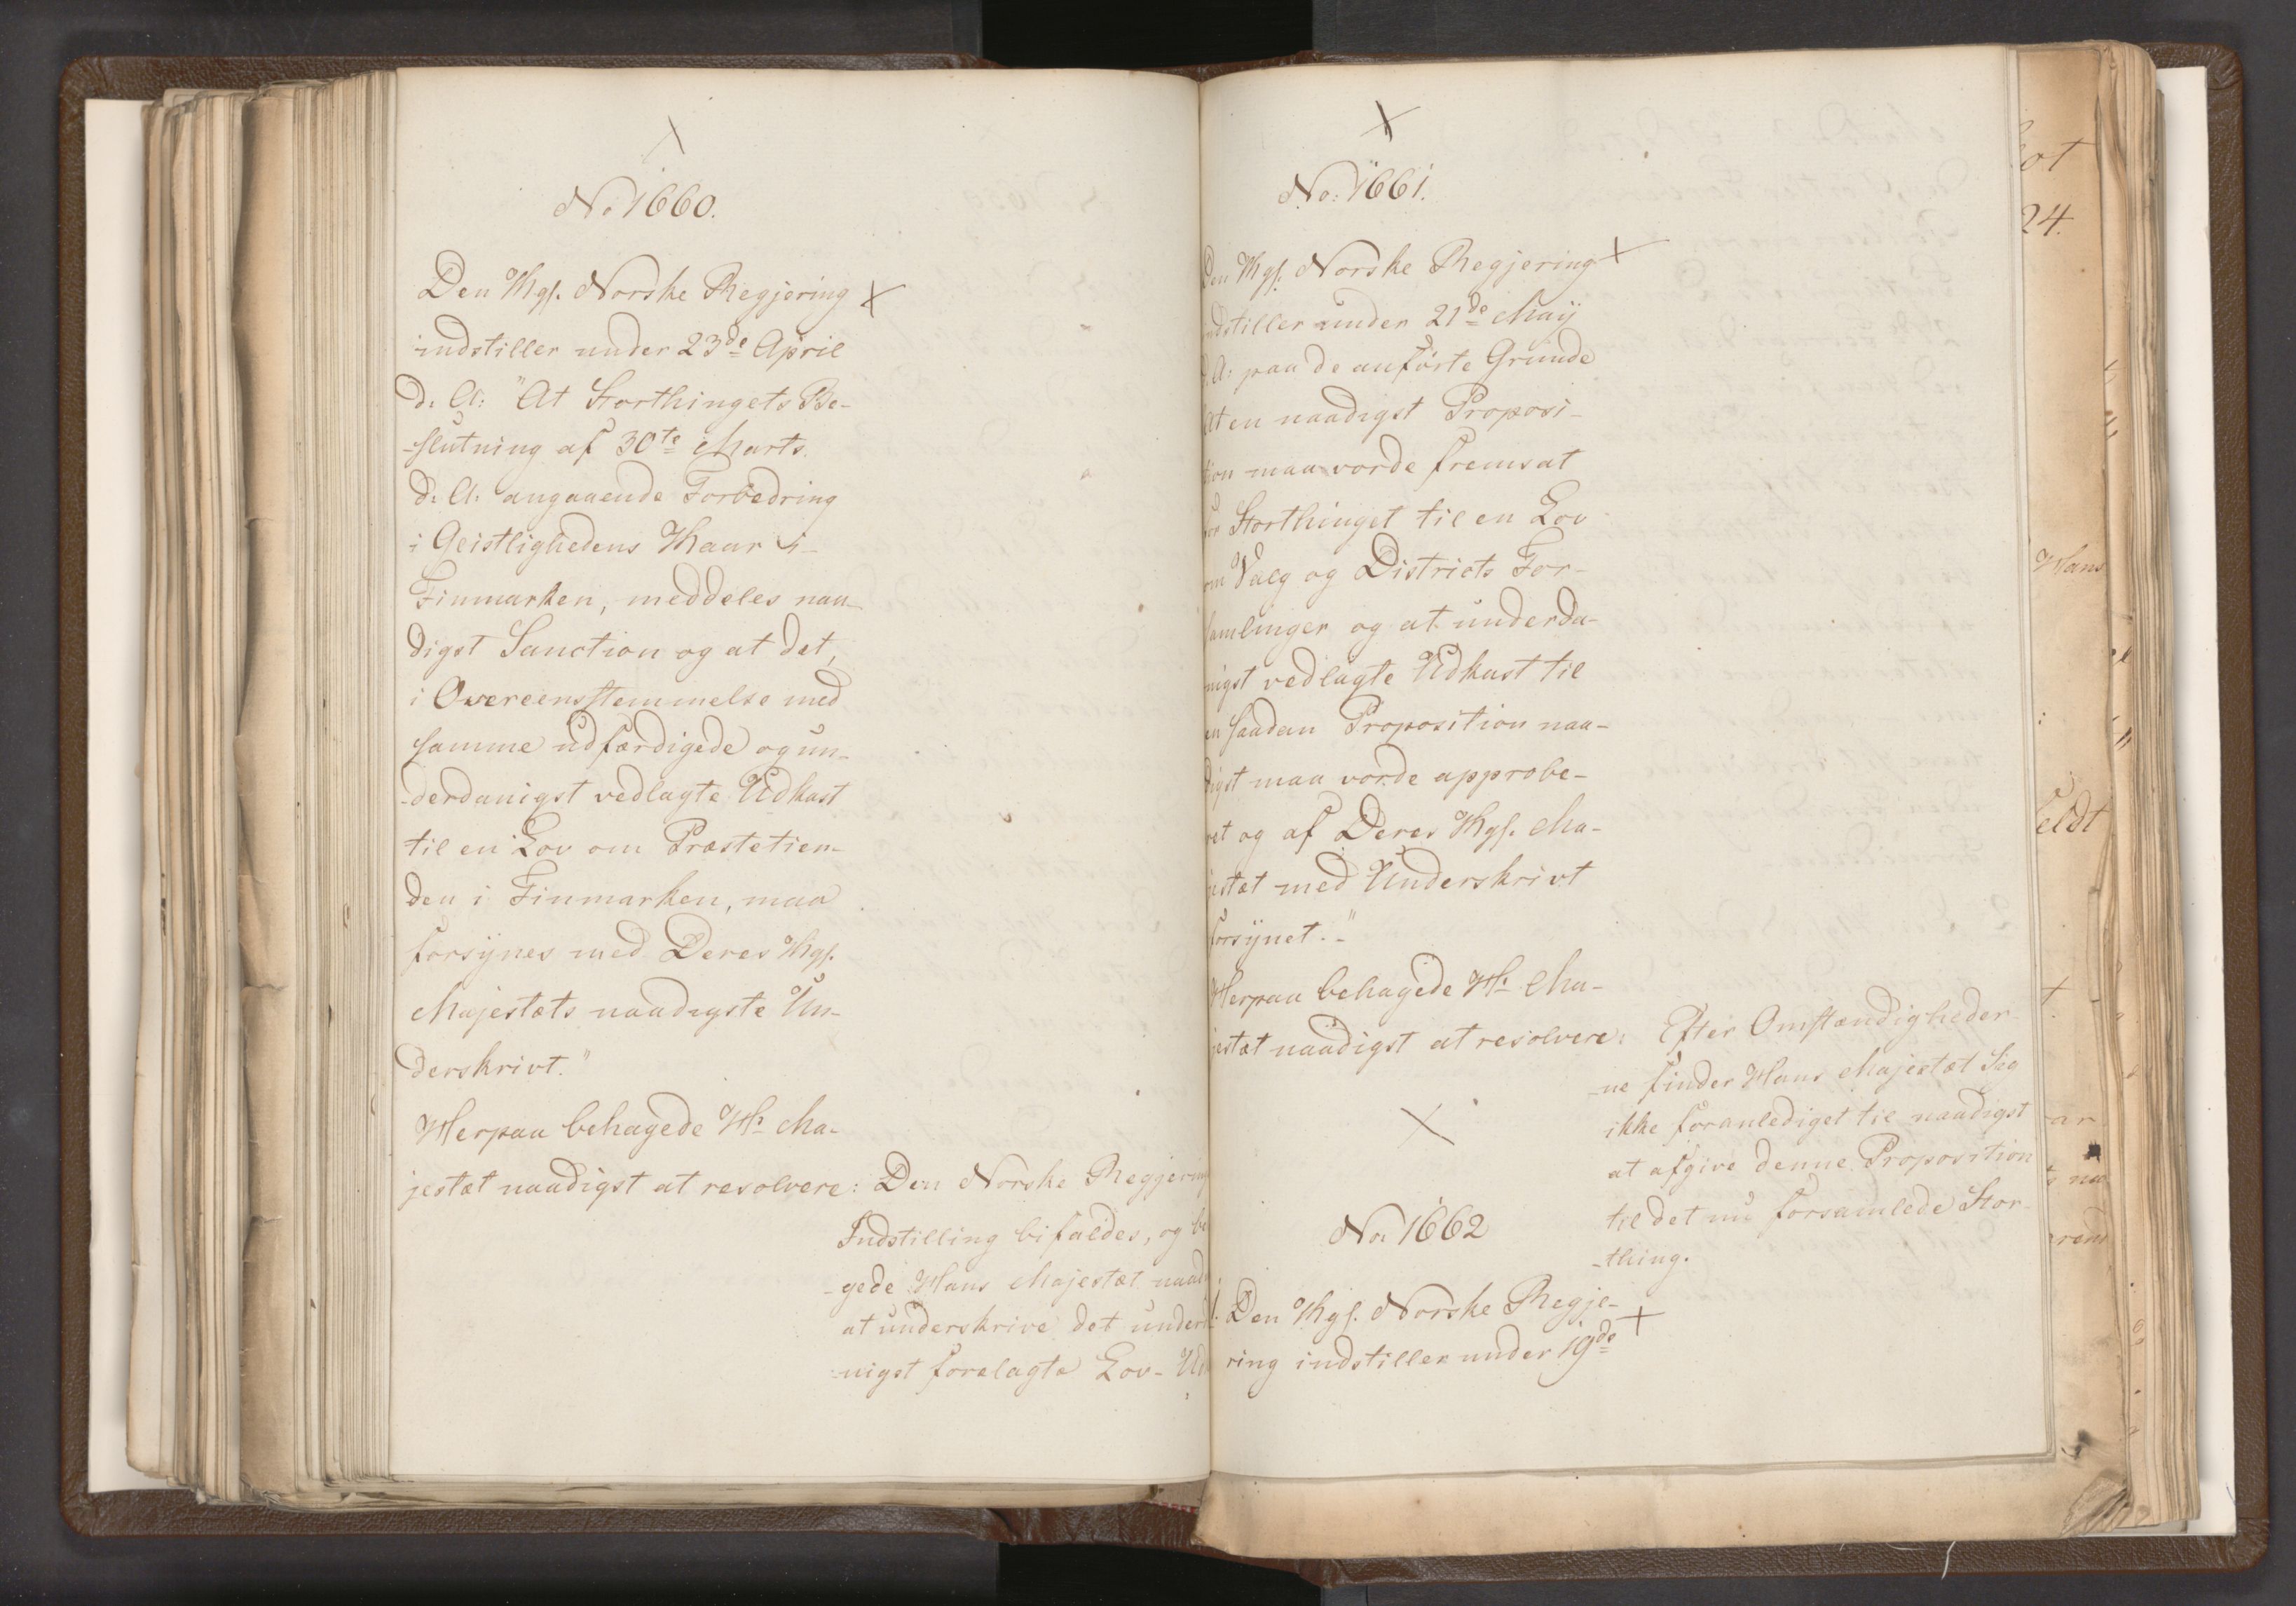 No 1660.
Den Kgl. Norske Regjering
indstiller under 23de April
d: A: "At Storthingets Be-
-slutning af 30te Marts
d: A: angaaende Forbedring
i Geistlighedens Kaar i
Finmarken, meddeles naa-
digst Sanction og at det,
i Overeensstemmelse med
samme udfærdigede og un-
-derdanigst vedlagte Udkast
til en Lov om Præstetien-
den i Finmarken, maa
forsÿnes med Deres Kgl.
Majestæts naadigste Un-
derskrivt."
Herpaa behagede Hs Ma-
jestæt naadigst at resolvere: Den Norske Regjering
Indstilling bifaldes, og be
-gede Hans Majestæt naad
at underskrive det underd
-nigst forelagte Lov-Ud
No: 1661.
Den Kgl. Norske Regjering
indstiller under 21de Maÿ
d. A: paa de anførte Grunde
At en naadigst Proposi-
tion maa vorde fremsat
for Storthinget til en Lov
om Valg og Districts For-
samlinger og at underda-
nigst vedlagte Udkast til
en saadan Proposition naa-
digst maa vorde approbe-
ret og af Deres Kgl. Ma-
jestæt med Underskrivt
forsÿnet."
Herpaa behagede Hs Ma-
jestæt naadigst at resolvere: Efter Omstændigheder-
-ne finder Hans Majestæt Sig
ikke foranlediget til naadigst
at afgive denne Proposition
til det nu forsamlede Stor-
-thing.
No: 1662
Den Kgl. Norske Regje-
ring indstiller under 19de
24.
Hans
feldt